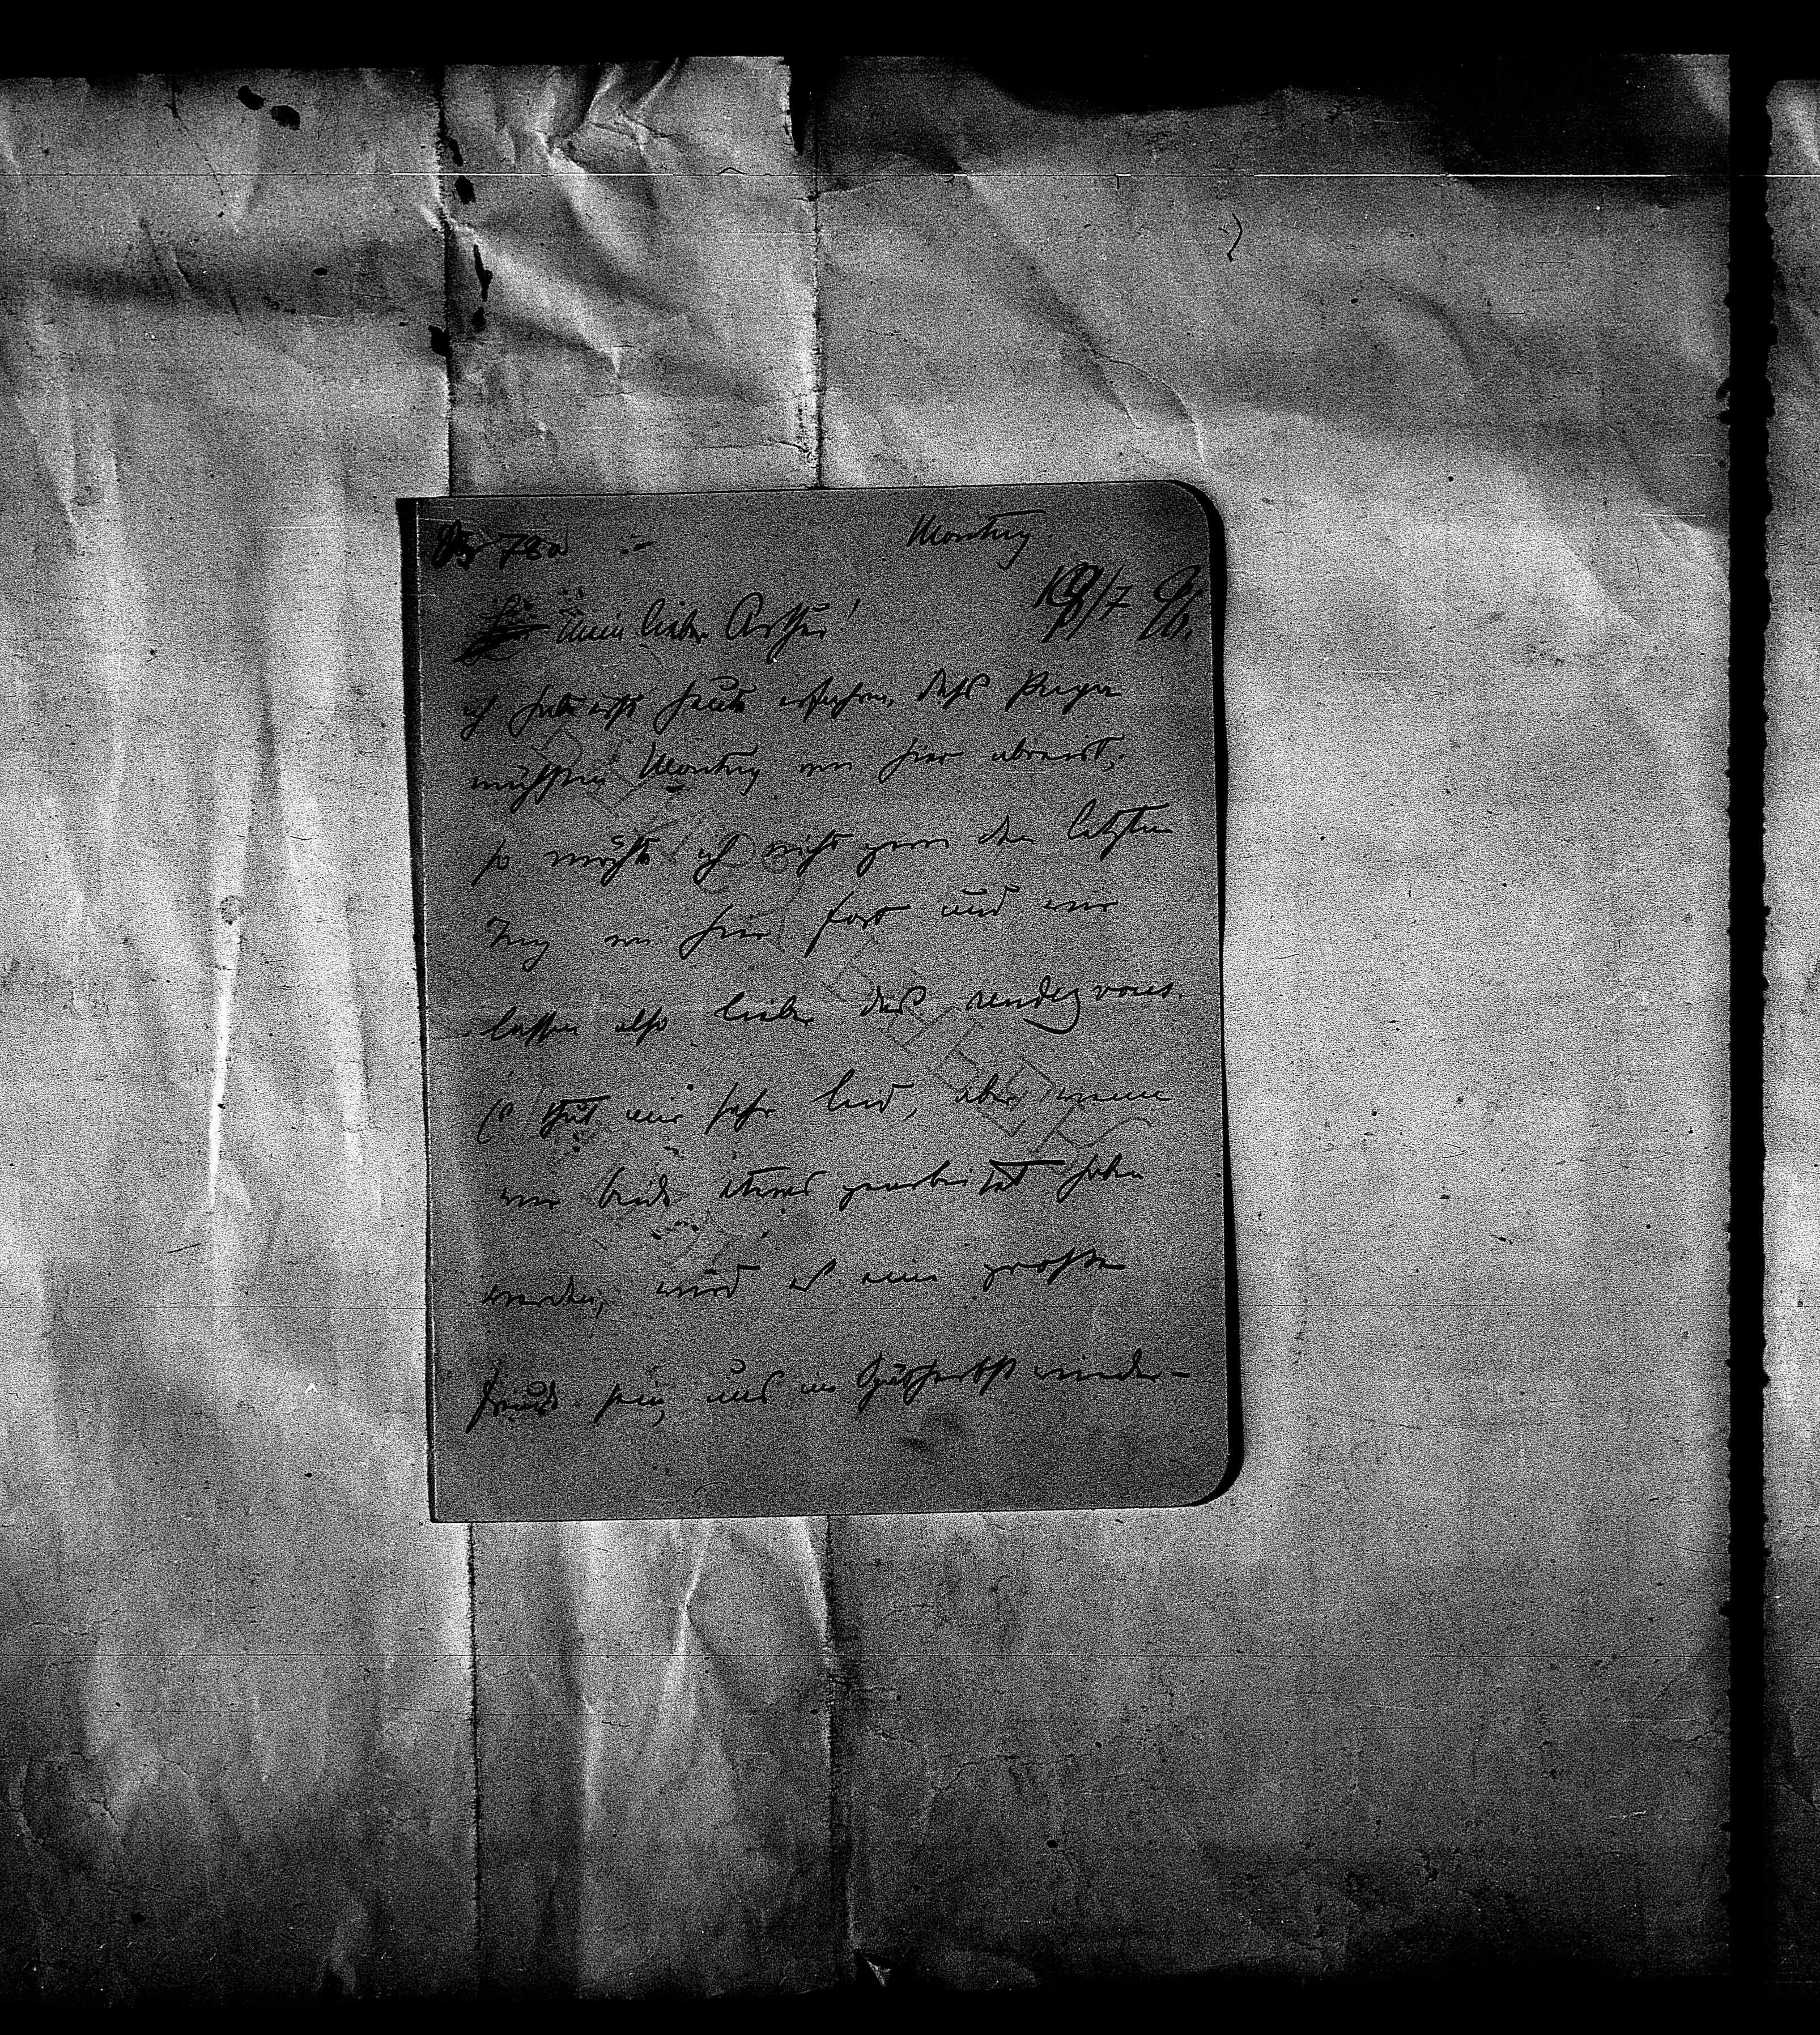 78a
Montag.
19/7 91.
mein lieber Arthur!
ich habe erst heute erfahren, dass
nächsten Montag von hier abreist;
so möchte ich nicht gern den letzten
Tag von hier fort und wir
lassen also lieber das rendezvous.
Es thut mir sehr leid, aber wenn
wir beide etwas gearbeitet haben
werden, wird es eine große
Freude sein, uns im Spätherbst wieder-